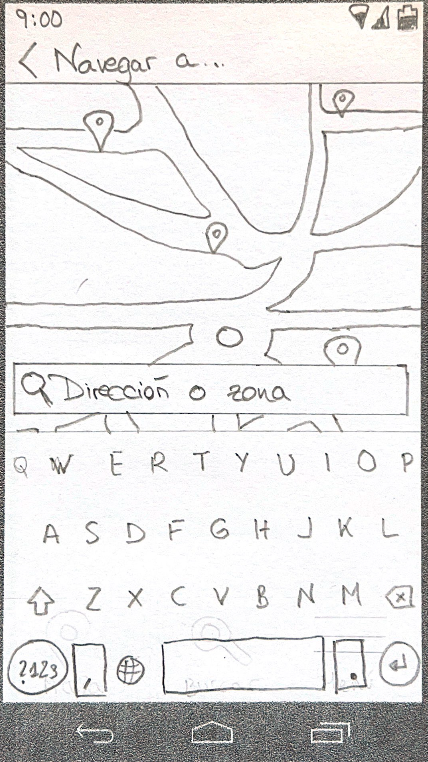 9:00
< Navegar a...
Dirección o zona
Q W E R T Y U I O P
A S D F G H J K L
Z X C V B N M
?123 , .